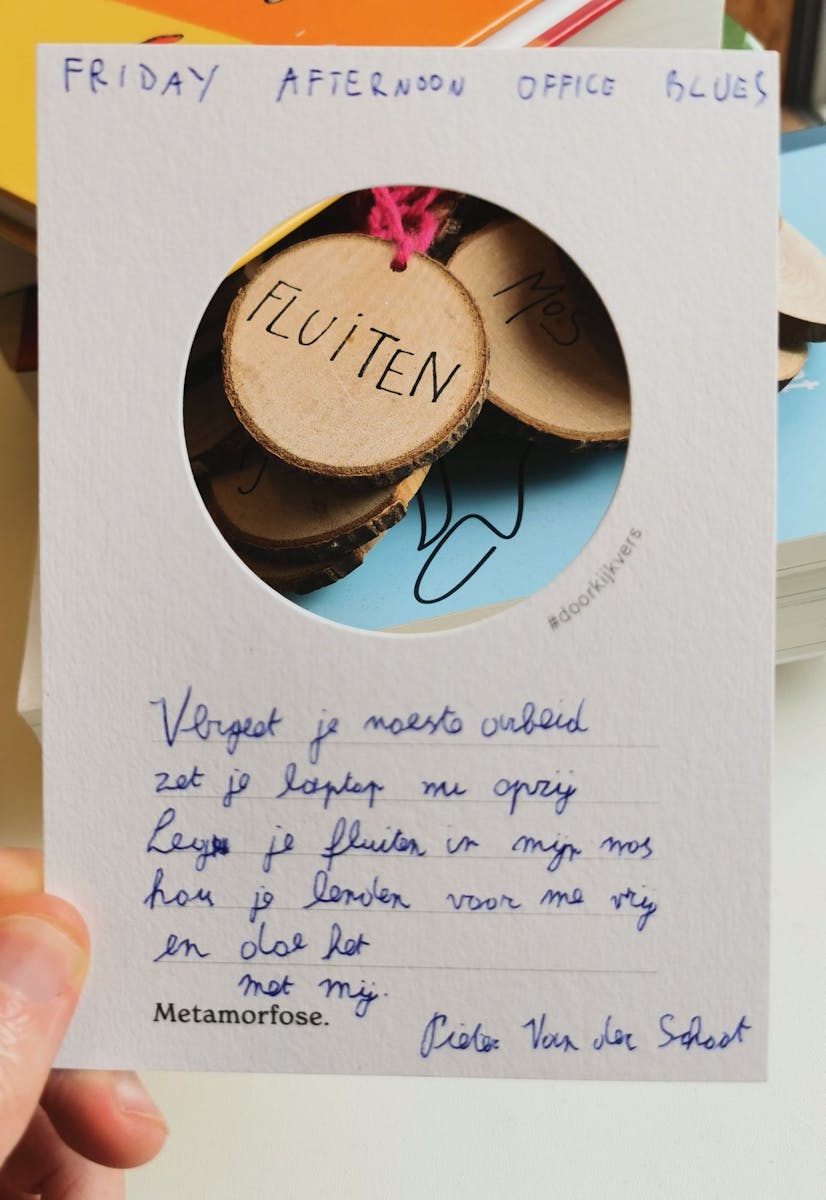 FRIDAY AFTERNOON OFFICE BLUES
FLUITEN
MOS
#doorkijkvers
Vergeet je noeste arbeid
zet je laptop nu opzij
Leg je fluiten in mijn mos
hou je lenden voor me vrij
en doe het
met mij.
Metamorfose.
Pieter Van der Schoot